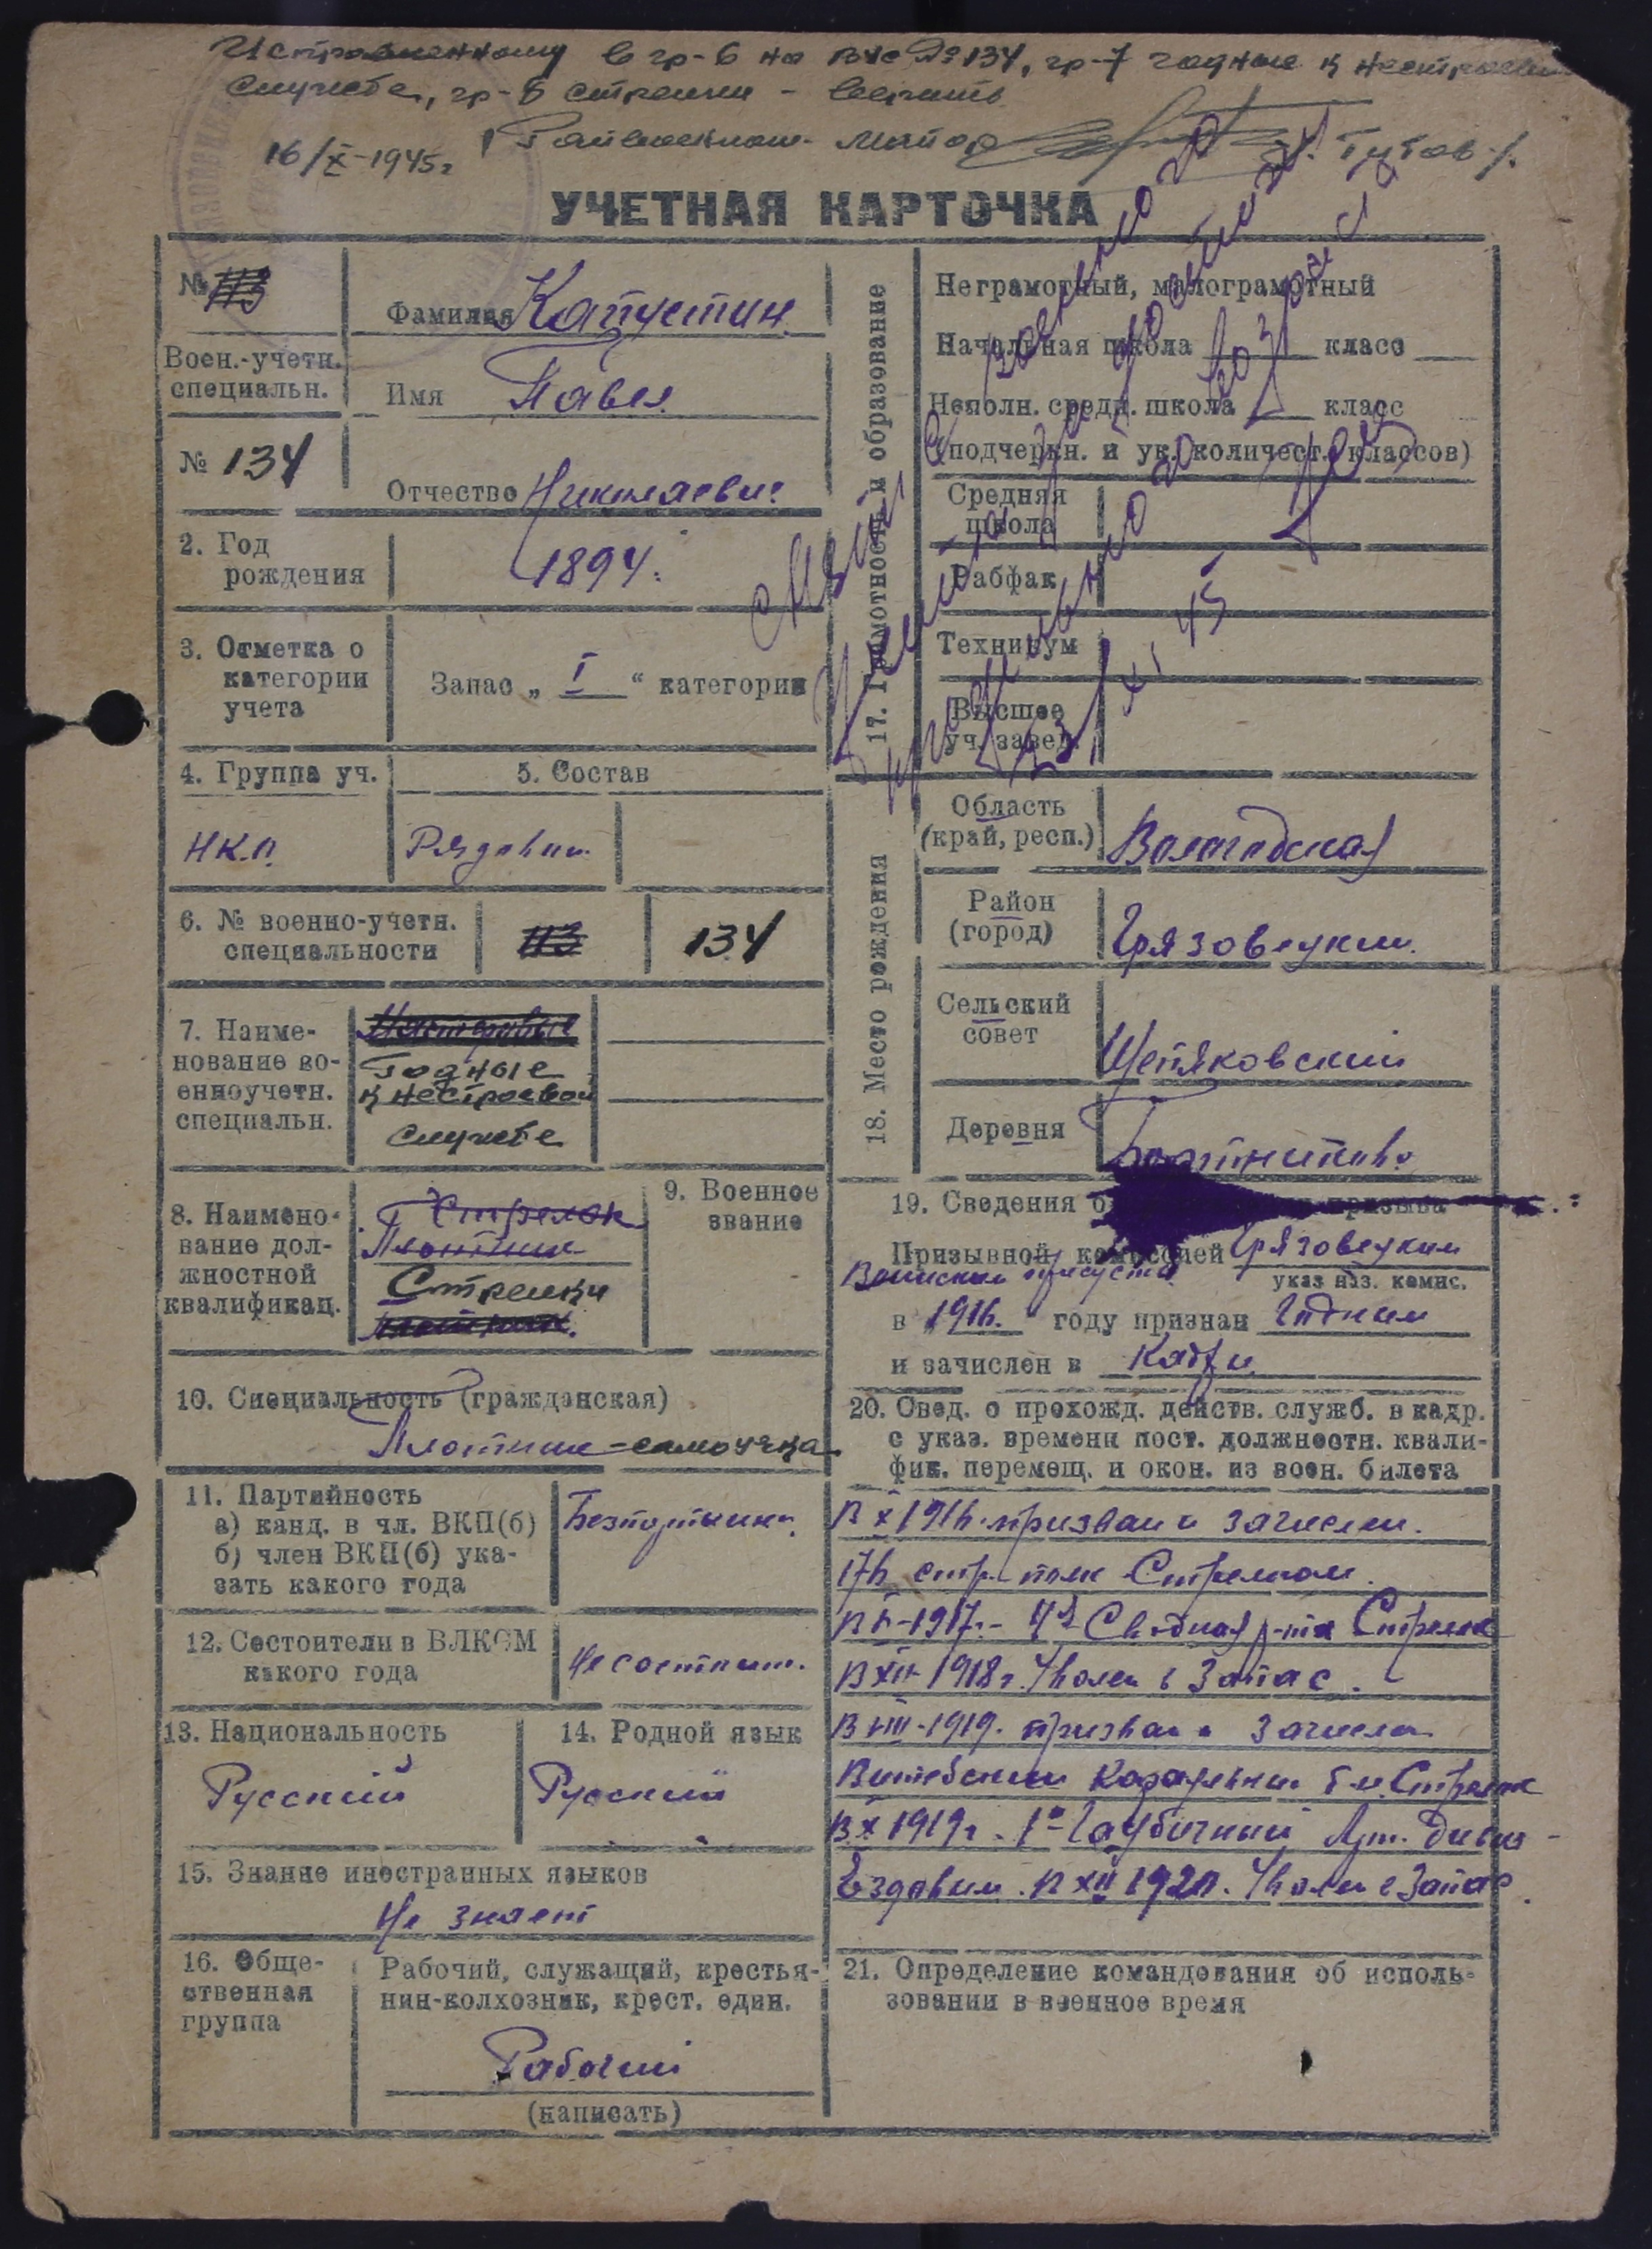 Исправленному в гр-6 на ВУС № 134, гр-7 годные к нестроевой
службе, гр-8 стрелки - верить
Райвоенком майор /Титов/.
16/X-1945г
УЧЕТНАЯ КАРТОЧКА
№ 113
Фамилия Капустин.
Воен.-учетн. специальн.
Имя Павел.
№ 134
Отчество Николаевич
2. Год рождения
1894.
3. Отметка о категории учета
Запас „ I “ категории
4. Группа уч.
5. Состав
НК.О.
Рядовой
6. № военно-учетн. специальности
113
134
7. Наименование военноучетн. специальн.
Годные
к нестроевой
службе
8. Наименование должностной квалификац.
Стрелок
Плотник
Стрелки
9. Военное звание
10. Специальность (гражданская)
Плотник-самоучка
11. Партийность
а) канд. в чл. ВКП(б)
б) член ВКП(б) указать какого года
Безпартийн.
12. Состоители в ВЛКСМ какого года
Не состоит.
13. Национальность
Русский
14. Родной язык
Русский
15. Знание иностранных языков
Не знает
16. Общественная группа
Рабочий, служащий, крестья-
нин-колхозник, крест. един.
Рабочий
(написать)
17. Грамотность и образование
Неграмотный, малограмотный
Начальная школа класс
Неполн. средн. школа класс
(подчеркн. и ук. количест. классов)
Средняя школа
Рабфак
Техникум
Высшее уч. завед.
Снят с
военного
учета
предельного возраста
23/XI 45
18. Место рождения
Область (край, респ.)
Вологодская
Район (город)
Грязовецкий.
Сельский совет
Щепяковский
Деревня
19. Сведения о призыва
Призывной комиссией Грязовецким
Воинским присутств.
указ наз. комис.
в 1916. году признан Годным
и зачислен в Кадры
20. Свед. о прохожд. действ. служб. в кадр.
с указ. времени пост. должностн. квали-
фик. перемещ. и окон. из воен. билета
В X 1916. призван и зачислен.
176 стр. полк Стрелком.
1917.- 4я Сводная р-та Стрелок
В XII-1918г. Уволен в Запас.
В VIII-1919. призван и зачислен
Витебский Караульный б-н. Стрелок
В X 1919г. 1й Гаубичный Арт. Дивиз-
Ездовым. В XII 1920. Уволен в Запас.
21. Определение командования об исполь-
зовании в военное время